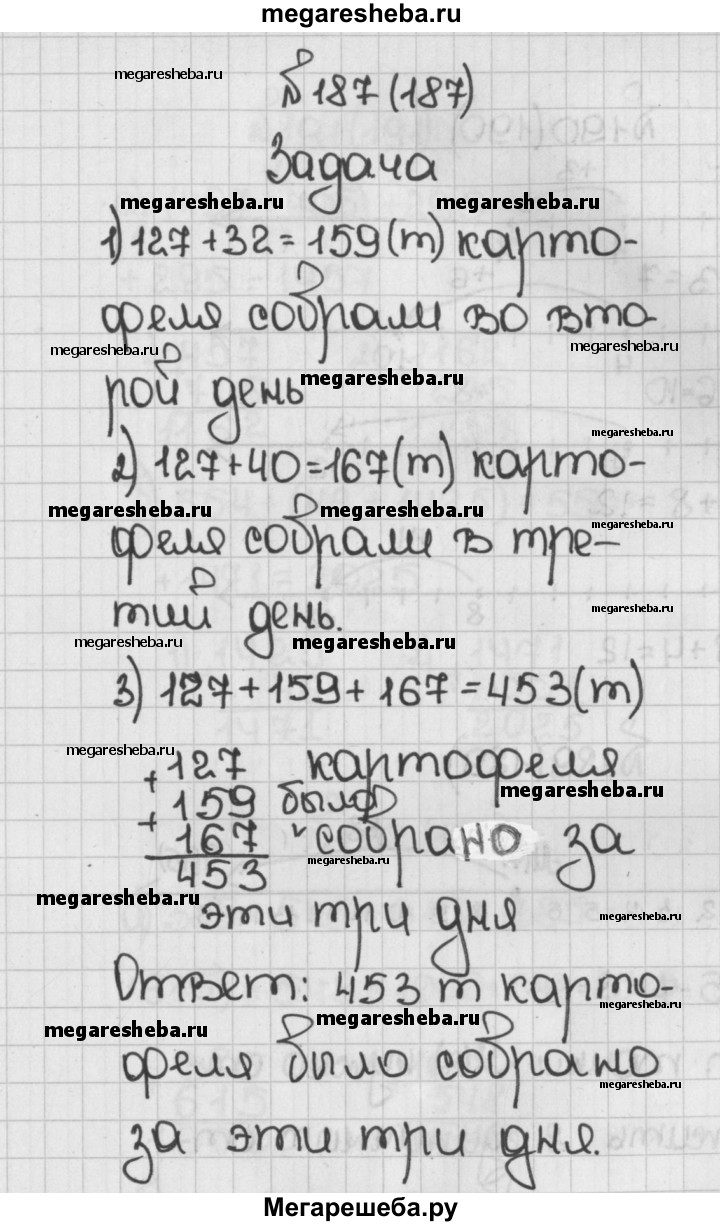 megaresheba.ru
megaresheba.ru
№187 (187)
Задача
megaresheba.ru megaresheba.ru
1) 127 + 32 = 159 (т) карто-
феля собрали во вто
megaresheba.ru megaresheba.ru
рой день
megaresheba.ru
megaresheba.ru
2) 127 + 40 = 167 (т) карто-
megaresheba.ru megaresheba.ru
megaresheba.ru
феля собрали в тре-
megaresheba.ru
тий день.
megaresheba.ru megaresheba.ru
megaresheba.ru
3) 127 + 159 + 167 = 453 (т)
megaresheba.ru
+127 картофеля
megaresheba.ru
+159 было
167 собрано за
453
megaresheba.ru
megaresheba.ru
эти три дня
megaresheba.ru
Ответ: 453 т карто-
megaresheba.ru
megaresheba.ru megaresheba.ru
феля было собрано
megaresheba.ru
за эти три дня.
Мегарешеба.ру